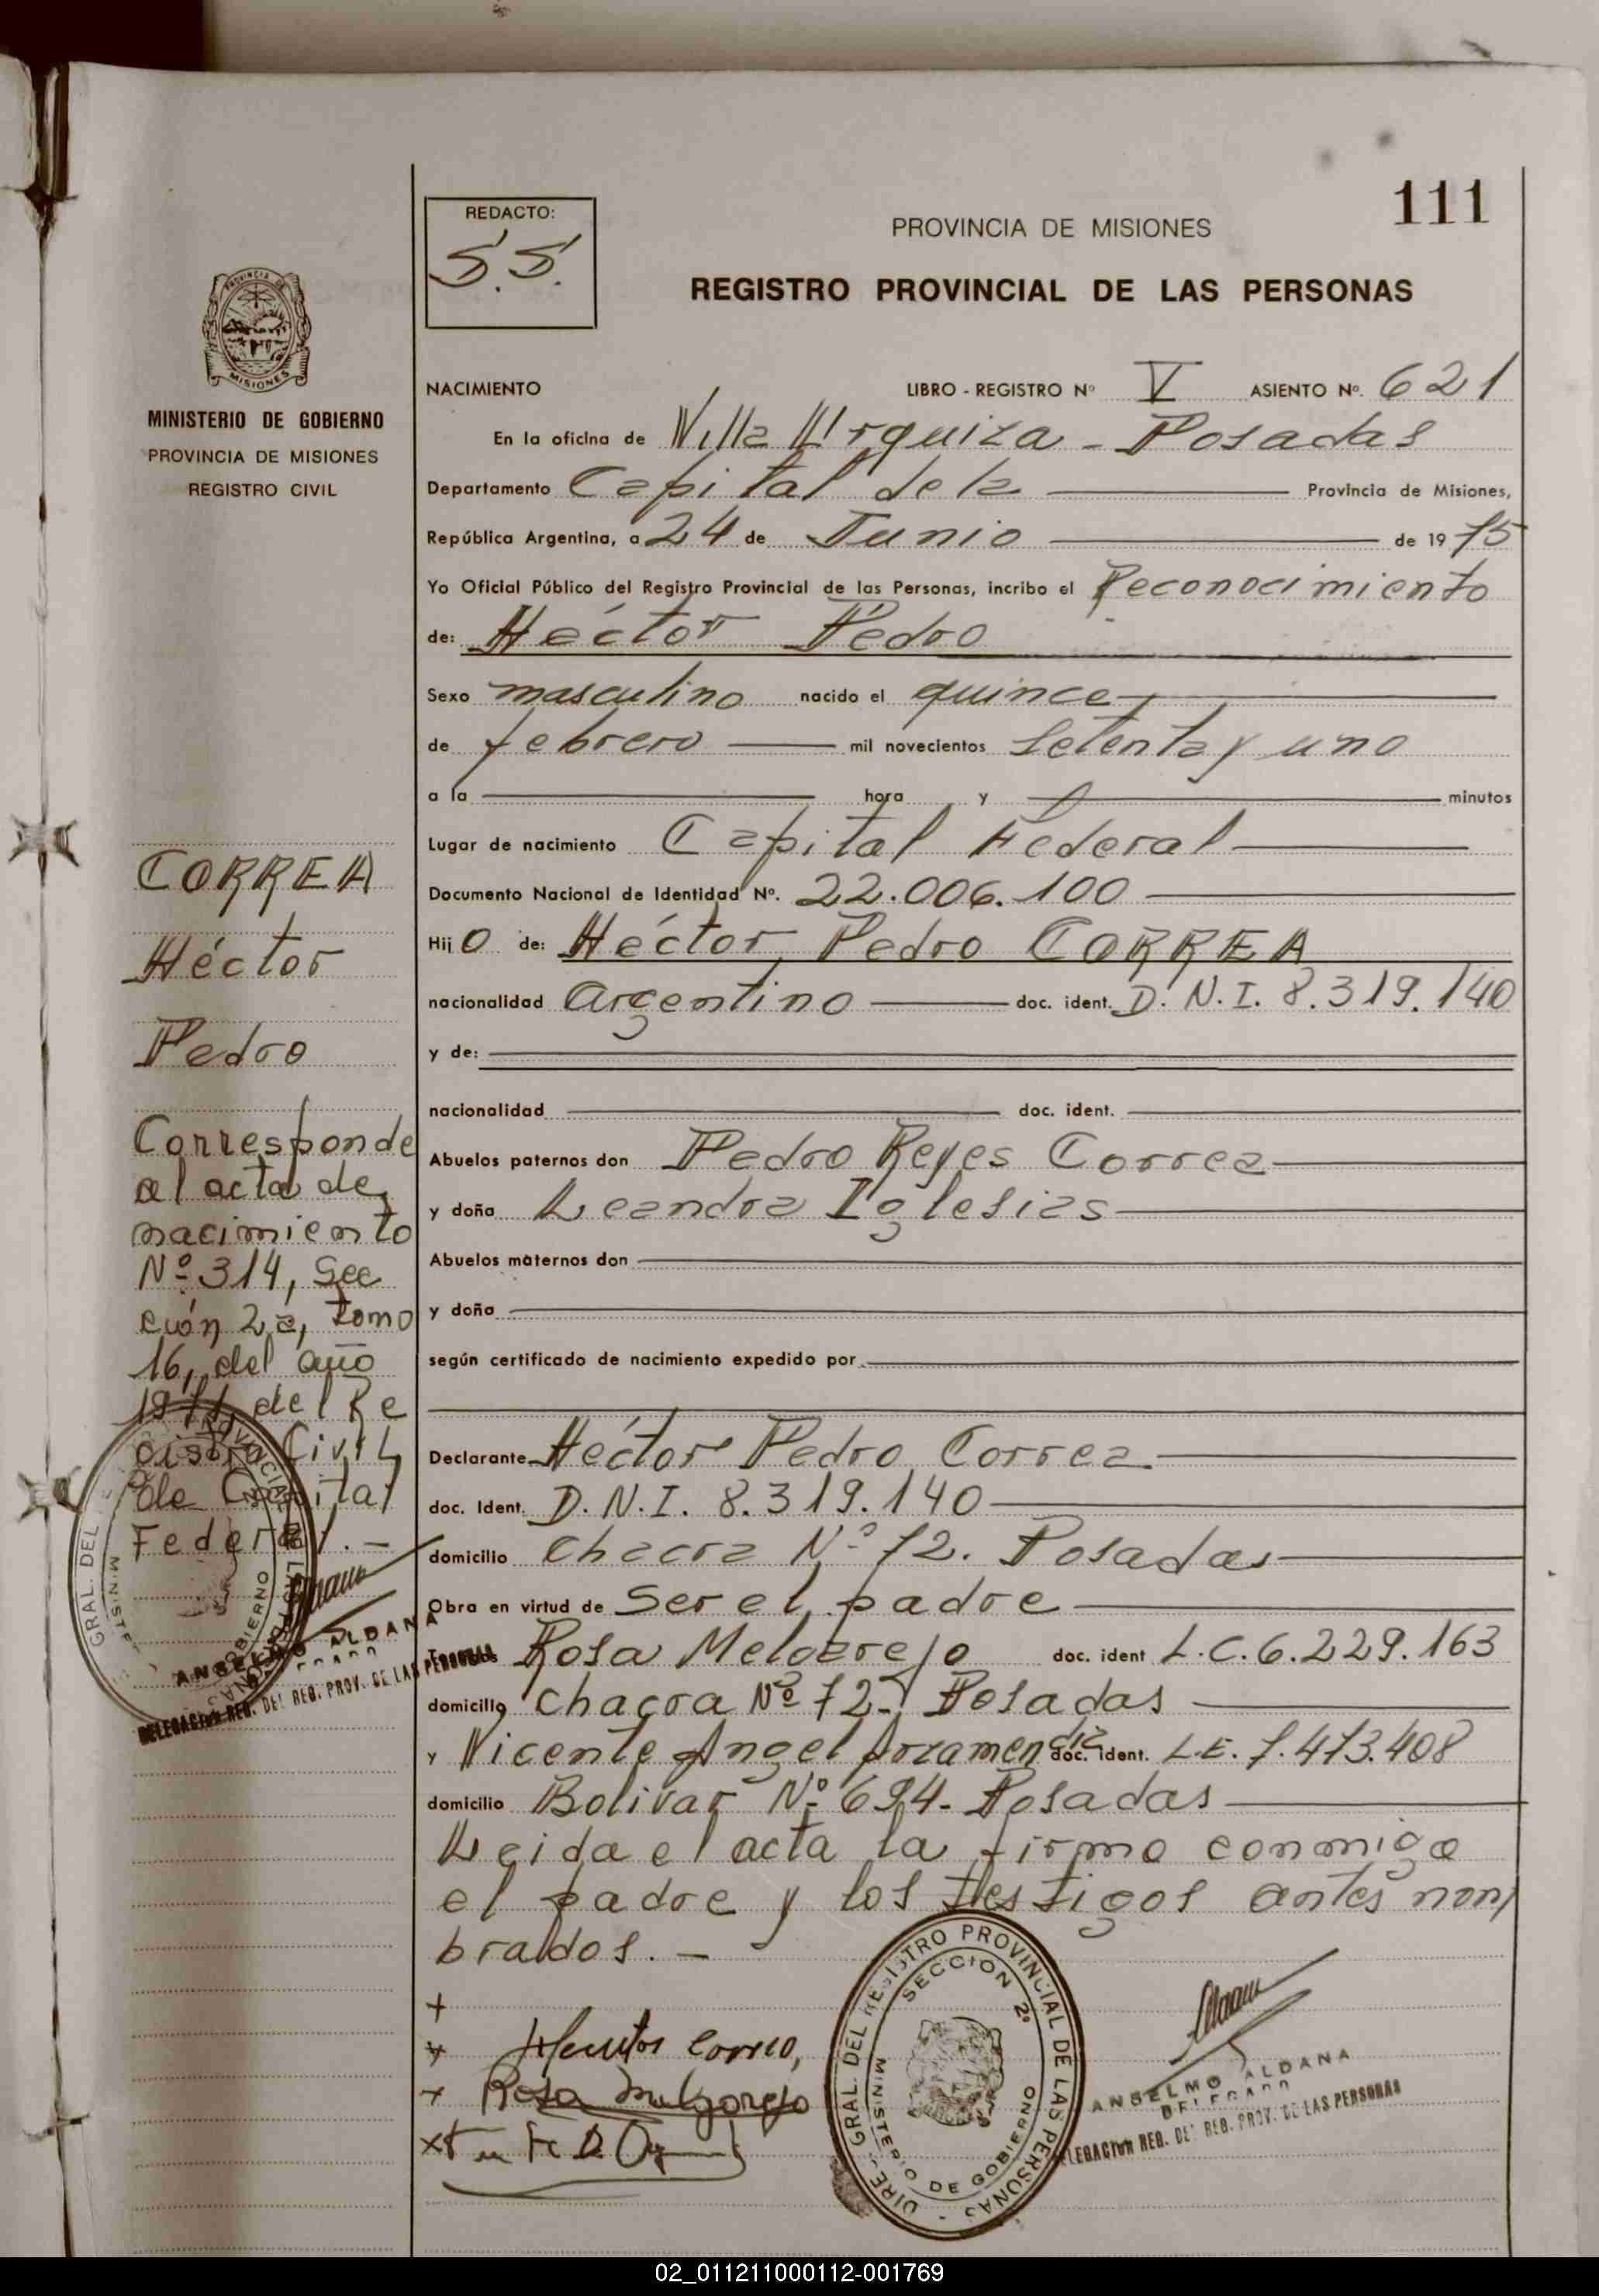 111
REDACTO:
S.S.
PROVINCIA DE MISIONES
REGISTRO PROVINCIAL DE LAS PERSONAS
PROVINCIA
MISIONES
MINISTERIO DE GOBIERNO
PROVINCIA DE MISIONES
REGISTRO CIVIL
NACIMIENTO LIBRO - REGISTRO Nº V ASIENTO Nº. 621
En la oficina de Villa Urquiza - Posadas
Departamento Capital de la Provincia de Misiones,
República Argentina, a 24 de Junio de 1975
Yo Oficial Público del Registro Provincial de las Personas, incribo el Reconocimiento
de: Héctor Pedro
Sexo masculino nacido el quince
de febrero mil novecientos setenta y uno
a la hora y minutos
Lugar de nacimiento Capital Federal
Documento Nacional de Identidad Nº. 22.006.100
Hijo de: Héctor Pedro CORREA
nacionalidad Argentino doc. ident. D.N.I. 8.319.140
y de:
nacionalidad doc. ident.
Abuelos paternos don Pedro Reyes Correa
y doña Leandra Iglesias
Abuelos maternos don
y doña
según certificado de nacimiento expedido por
Declarante Héctor Pedro Correa
doc. Ident. D.N.I. 8.319.140
domicilio Chacra Nº 72. Posadas
Obra en virtud de ser el padre
Rosa Melgarejo doc. ident L.C. 6.229.163
domicilio Chacra Nº 72- Posadas
y Vicente Angel doc. ident. L.E. 7.473.408
domicilio Bolivar Nº 694- Posadas
Leida el acta la firmo conmigo
el padre y los testigos antes nom
brados. -
CORREA
Héctor
Pedro
Corresponde
al acta de
nacimiento
Nº 314, Sec
ción 2ª, tomo
16, del año
1971 del Re
gistro Civil
de Capital
Federal. -
ANSELMO ALDANA
DELEGACION REG. DEL REG. PROV. DE LAS PERSONAS
+
+ Correa
+ Rosa Melgarejo
DIRE. GRAL. DEL REGISTRO PROVINCIAL DE LAS PERSONAS
SECCION 2ª
MINISTERIO DE GOBIERNO
ANSELMO ALDANA
DELEGADO
DELEGACION REG. DEL REG. PROV. DE LAS PERSONAS
02_011211000112-001769